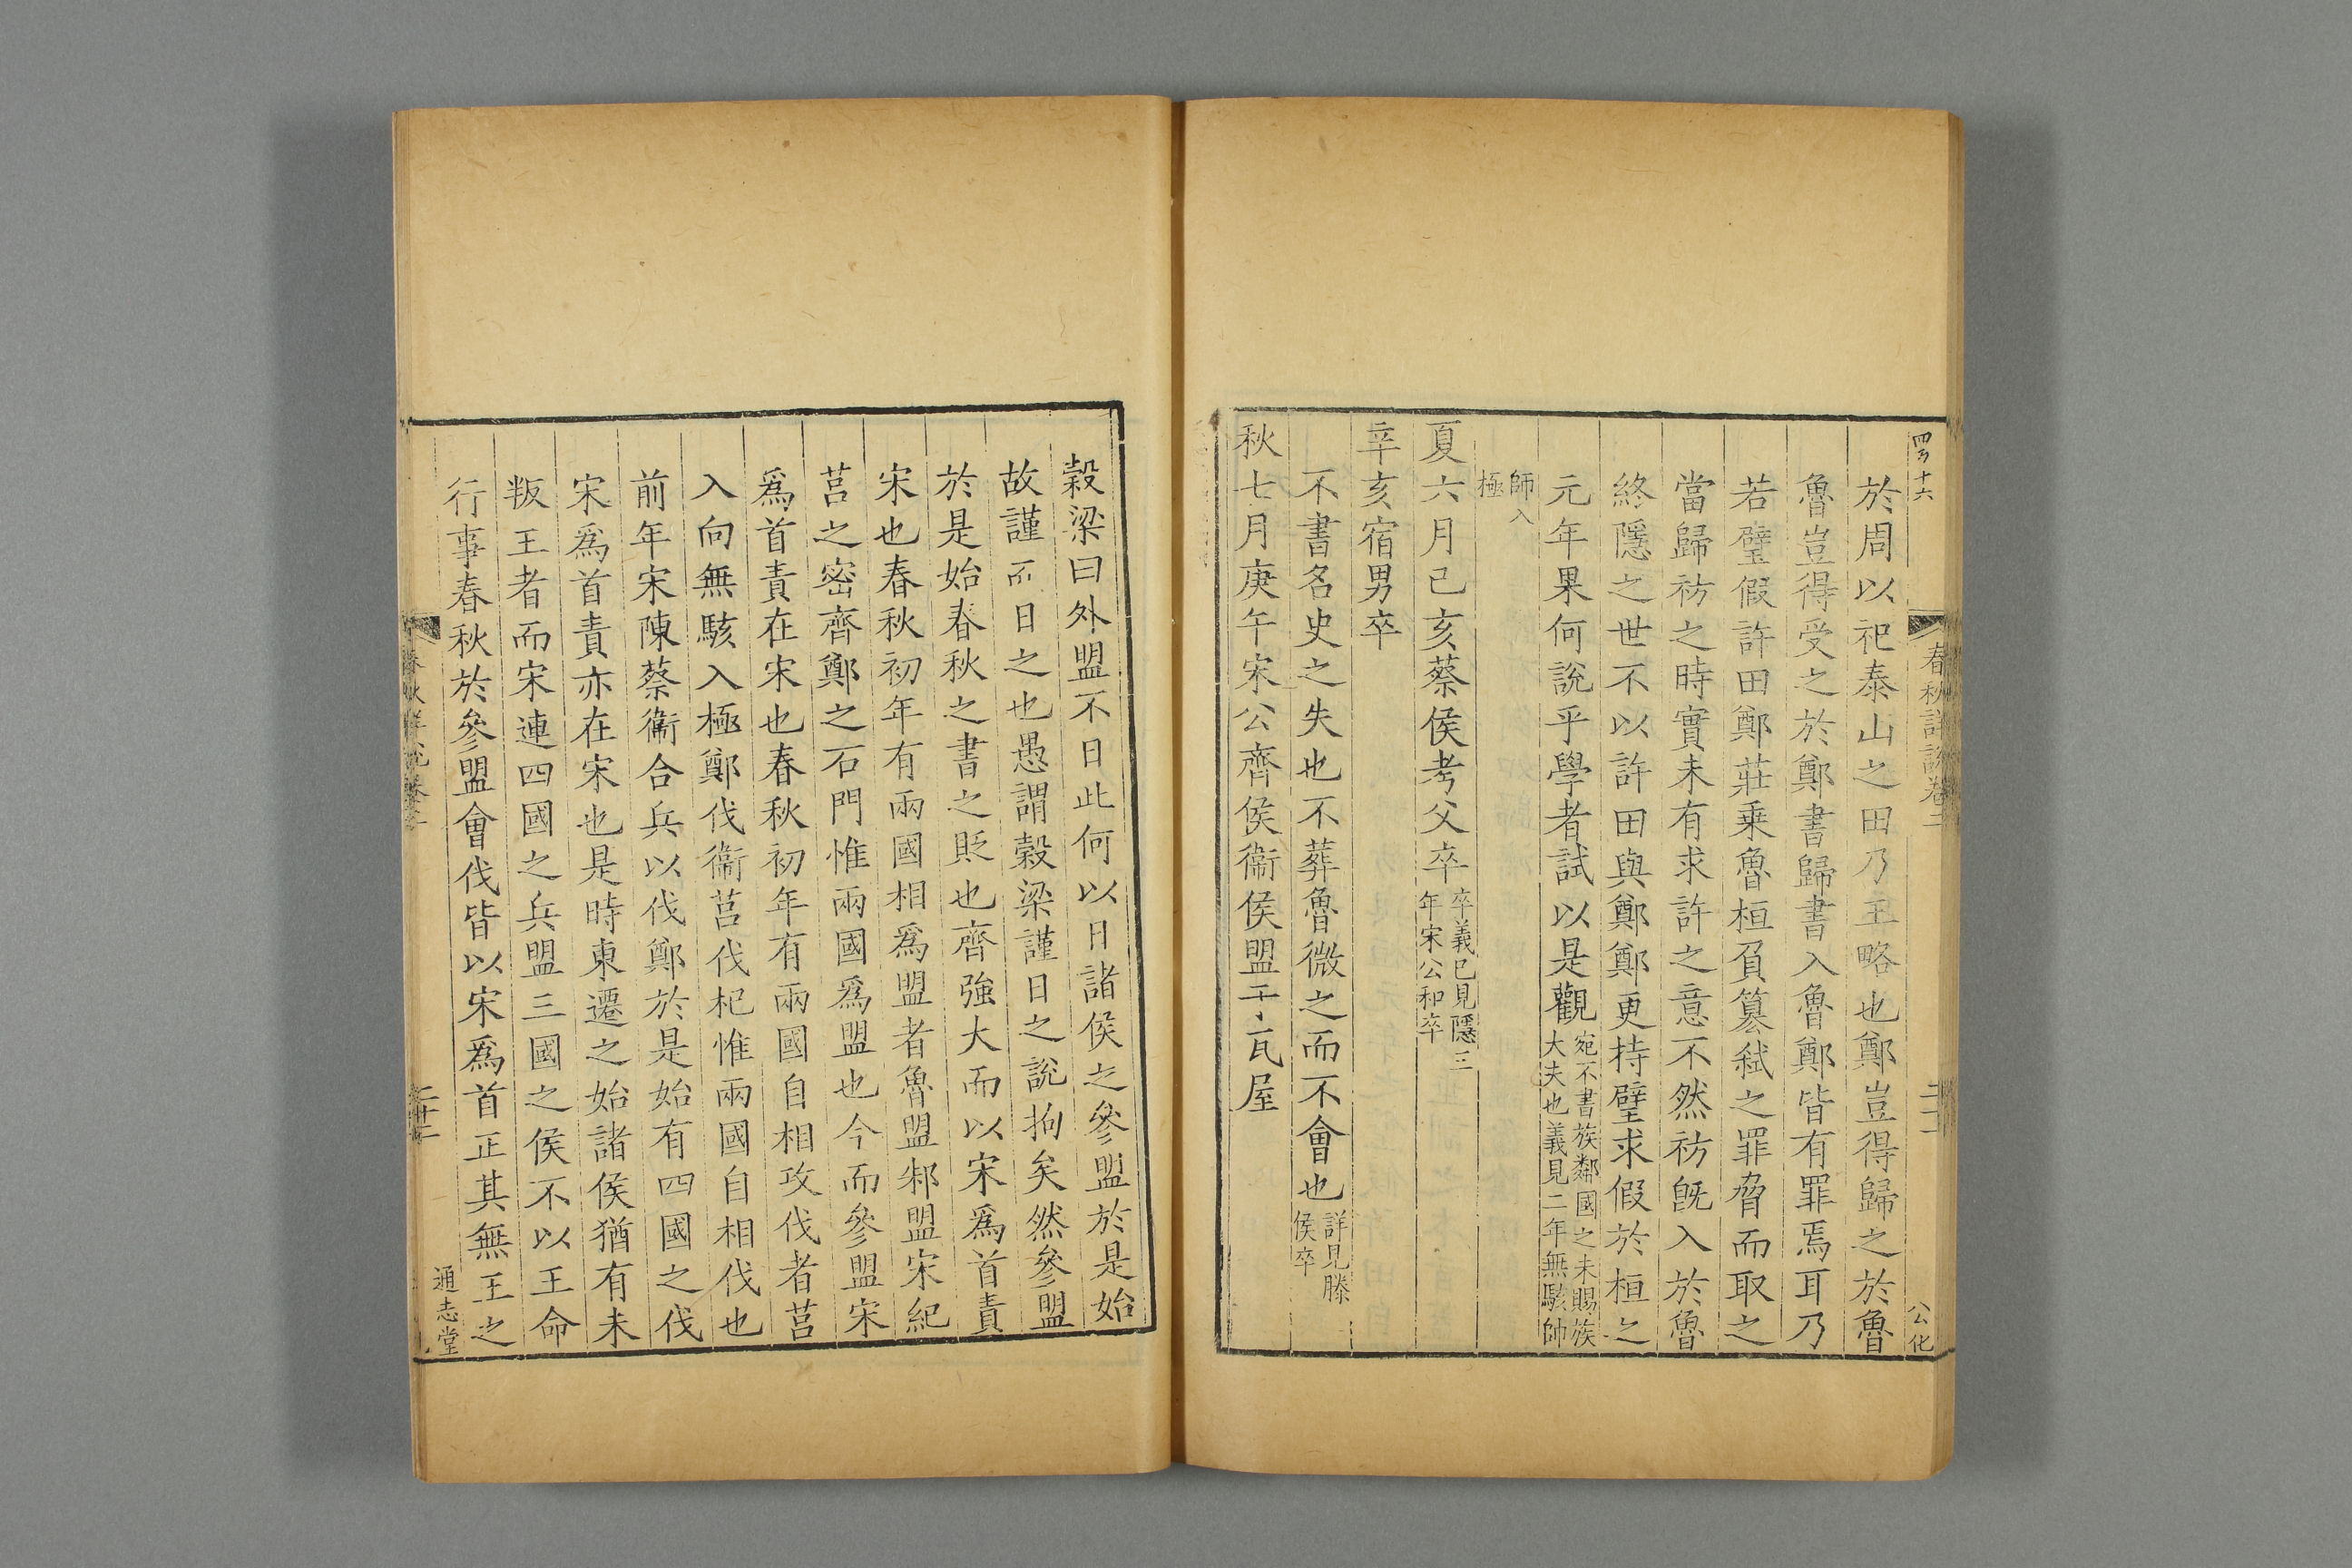 於周以祀泰山之田乃王略也鄭豈得歸之於魯
魯豈得受之於鄭書歸書入魯鄭皆有罪焉耳乃
若璧假許田鄭莊乗魯桓負簒弑之罪脅而取之
當歸祊之時實未有求許之意不然祊既入於魯
終隱之世不以許田與鄭鄭更持璧求假於桓之
元年果何説乎學者試以是觀
宛不書族鄰國之未賜族
大夫也義見二年無駭帥
師入
極
夏六月己亥蔡侯考父卒
卒義已見隱三
年宋公和卒
辛亥宿男卒
不書名史之失也不葬魯微之而不會也
詳見滕
侯卒
秋七月庚午宋公齊侯衞侯盟于瓦屋
春秋詳説卷二
公化
穀梁曰外盟不日此何以日諸侯之參盟於是始
故謹而日之也愚謂穀梁謹日之説拘矣然參盟
於是始春秋之書之貶也齊強大而以宋爲首責
宋也春秋初年有兩國相爲盟者魯盟邾盟宋紀
莒之密齊鄭之石門惟兩國爲盟也今而參盟宋
爲首責在宋也春秋初年有兩國自相攻伐者莒
入向無駭入極鄭伐衞莒伐杞惟兩國自相伐也
前年宋陳蔡衞合兵以伐鄭於是始有四國之伐
宋爲首責亦在宋也是時東遷之始諸侯猶有未
叛王者而宋連四國之兵盟三國之侯不以王命
行事春秋於參盟會伐皆以宋爲首正其無王之
通志堂